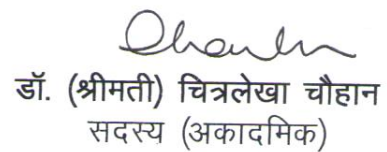 डॉ. (श्रीमती) चित्रलेखा चौहान
सदस्य (अकादमिक)